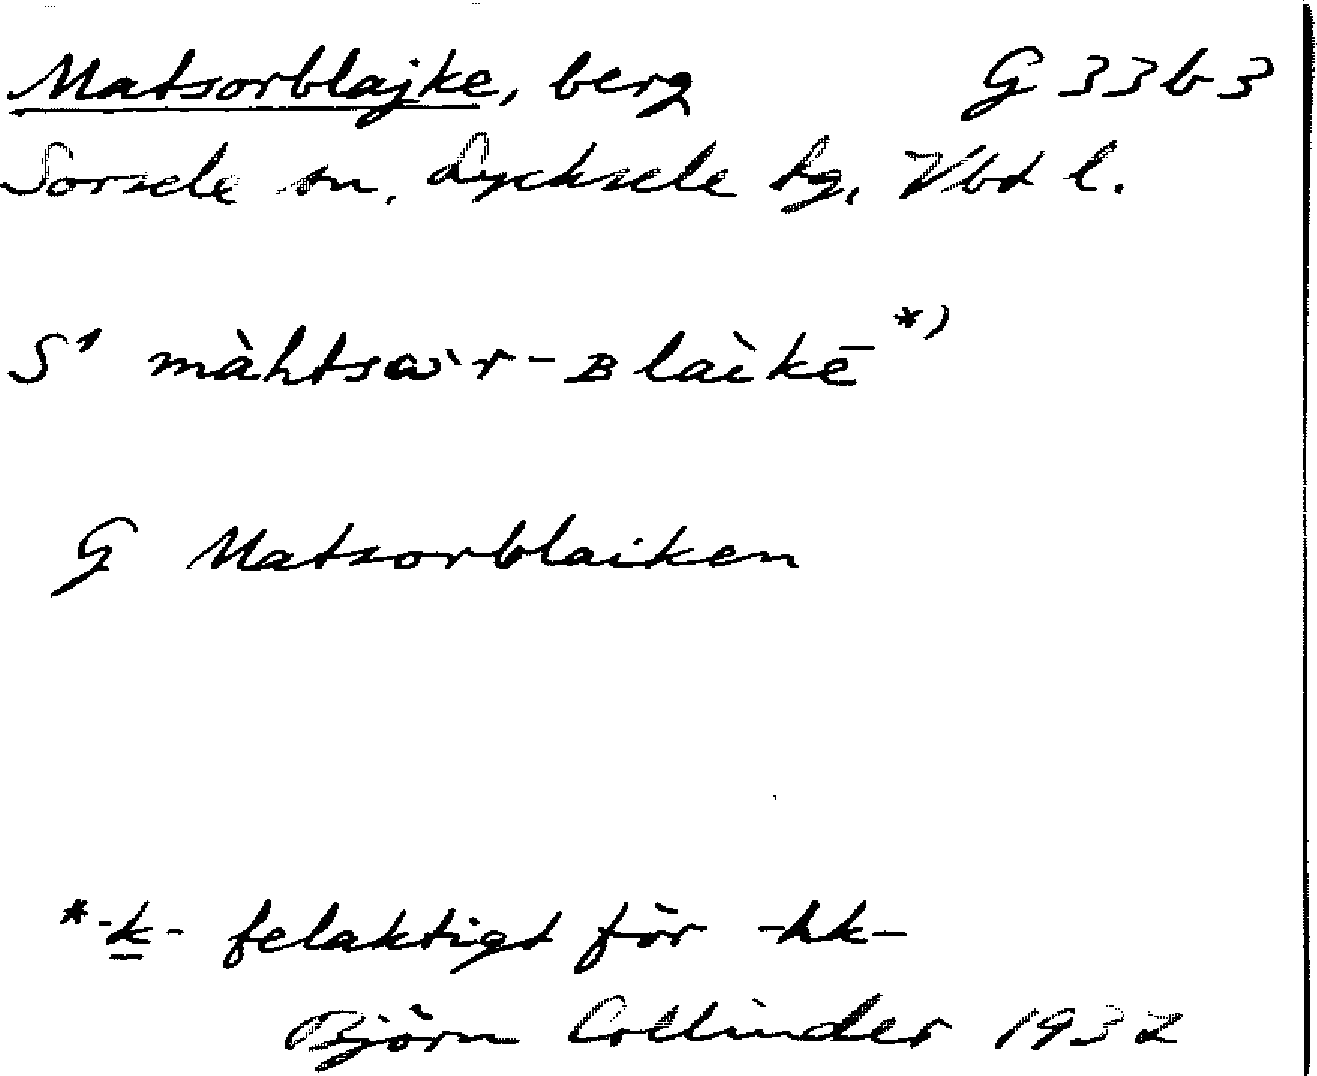 Matsorblajke, berg G 33 b 3
Sorsele sn, Lycksele lg, Vbt l.
S¹ màhtsɷ̀r-ʙlaìkē *)
G Matsorblaiken
* -k- felaktigt för -hk-
Björn Collinder 1932